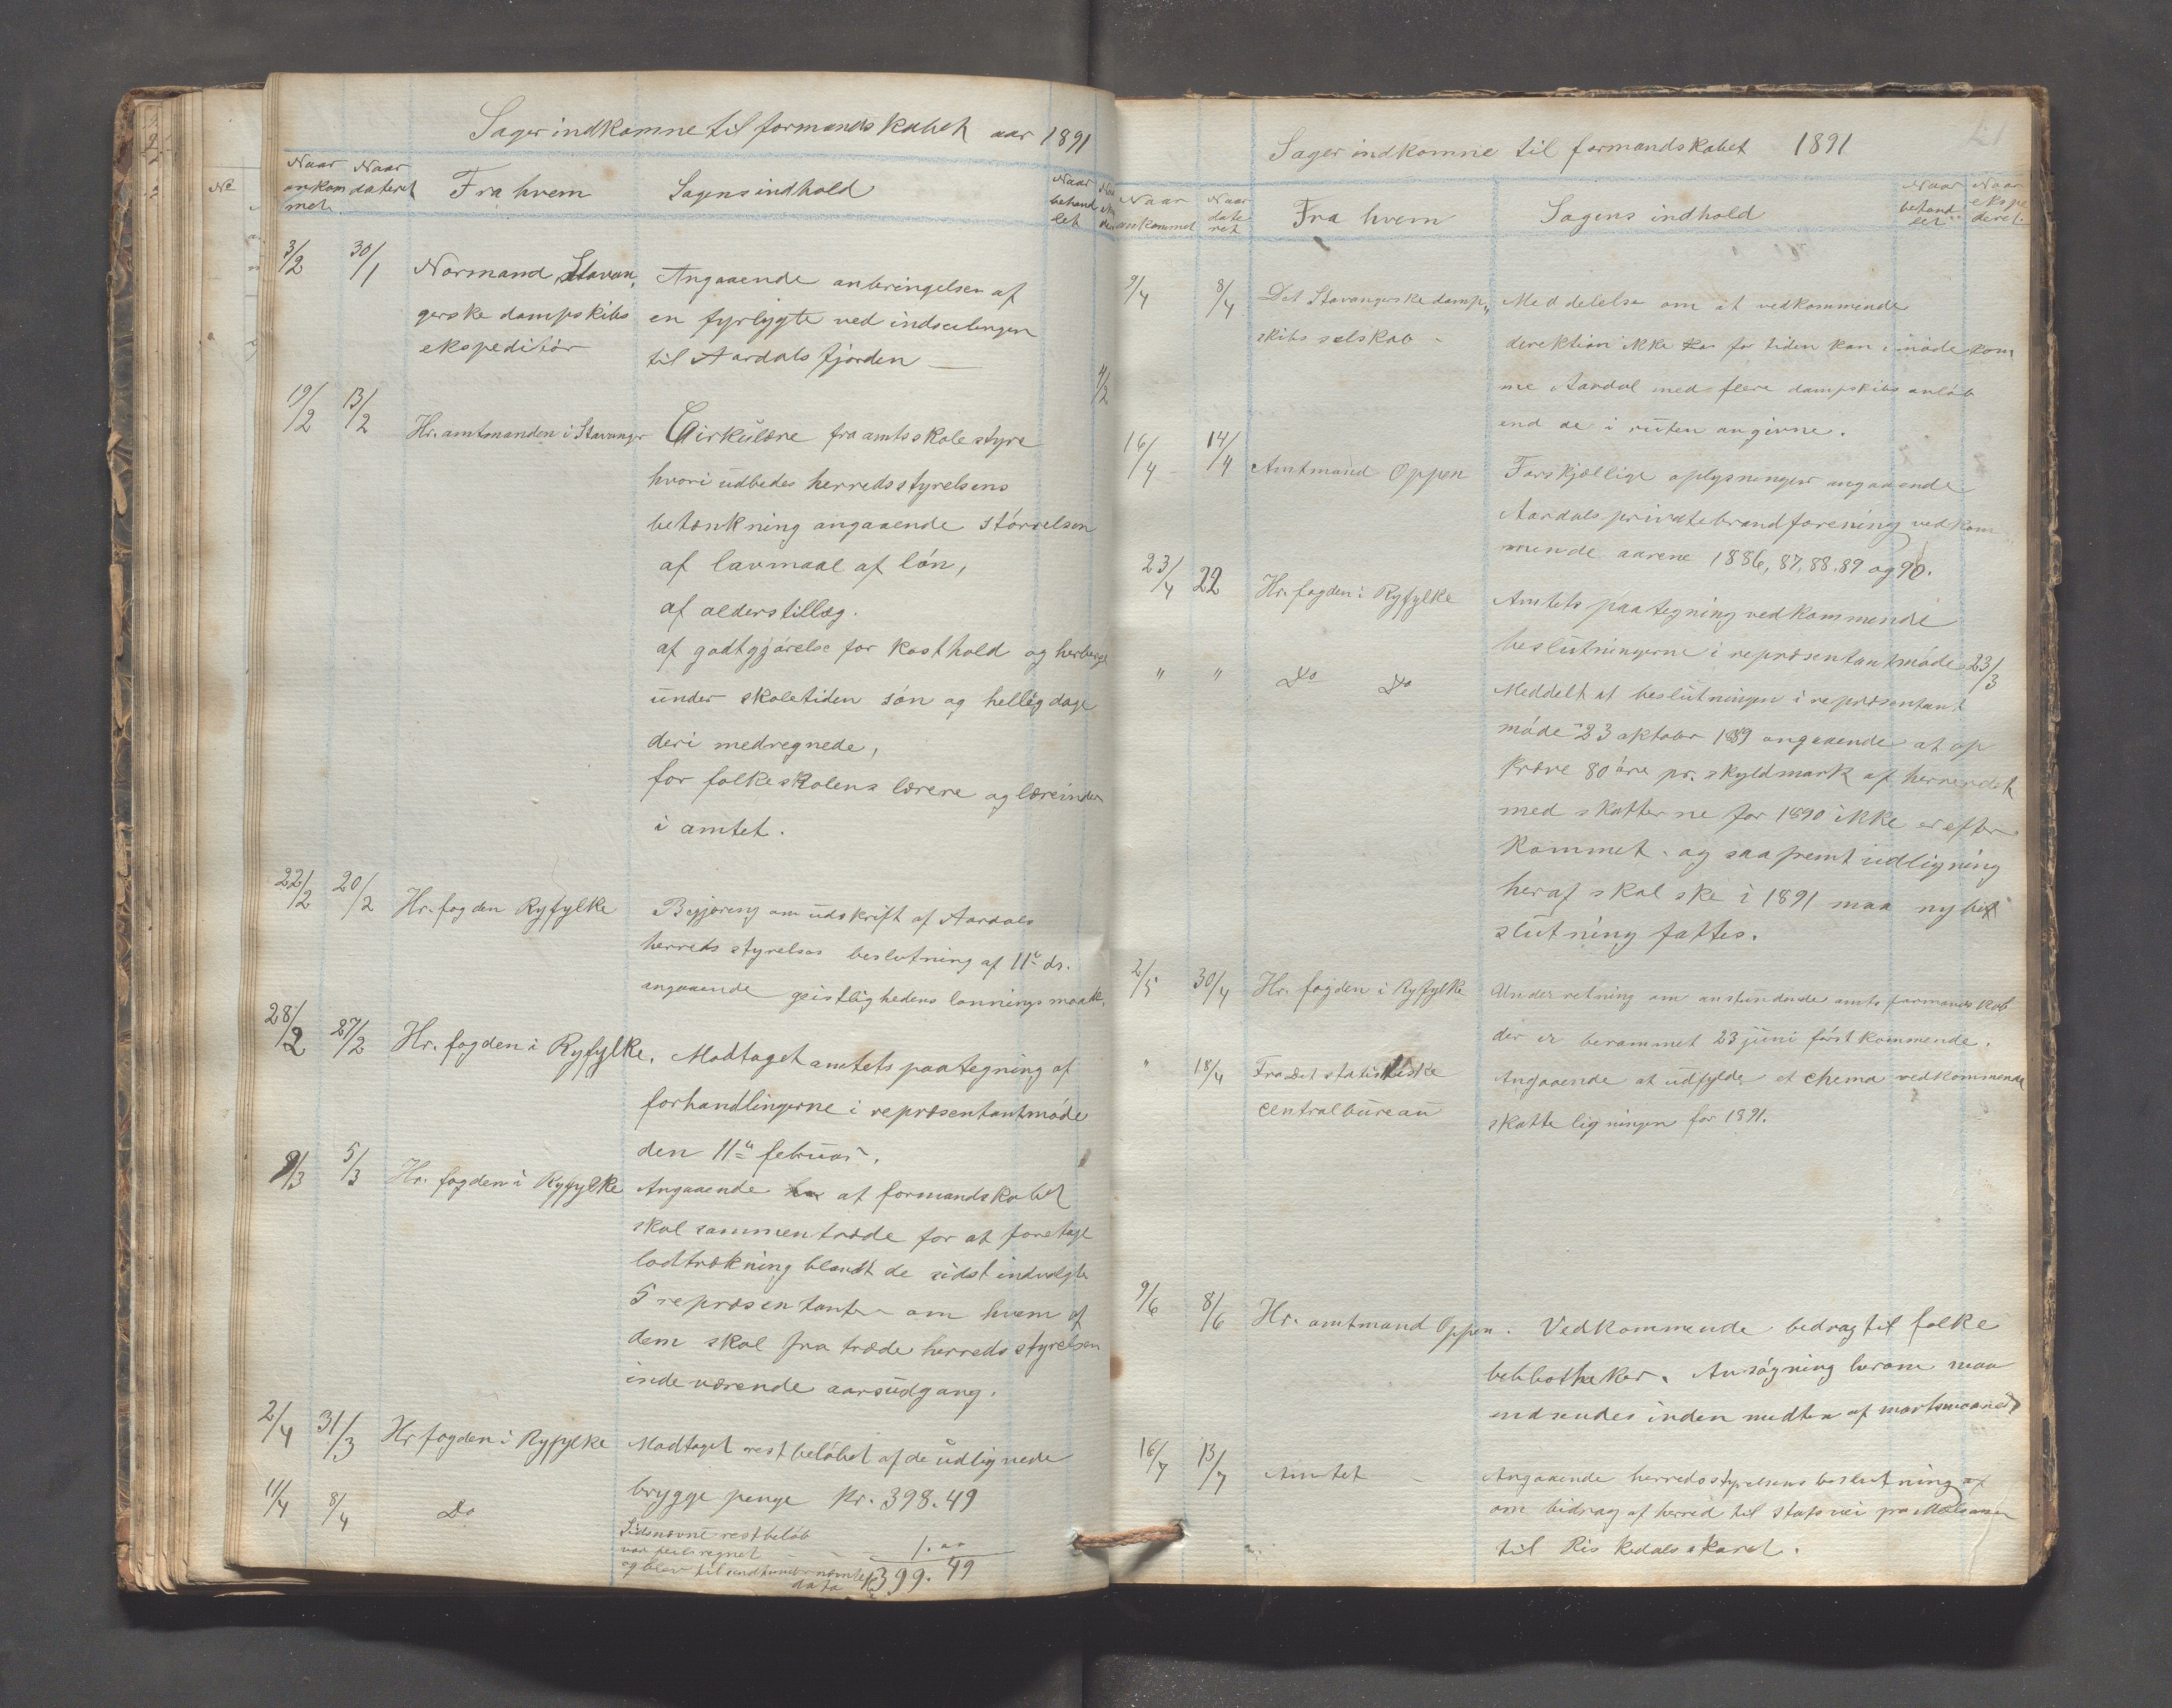 Sager indkomne til formandskabet aar 1891
Naar ankommet
Naar dateret
Fra hvem
Sagens indhold
Naar behandlet
3/2 30/1 Normand, Stavan,
gerske dampskibs
ekspeditör
Angaaende anbringelsen af
en fyrlygte ved indseilingen
til Aardalsfjorden —
4/2
19/2 13/2 Hr. amtmanden i Stavanger
Cirkulære fra amtsskolestyre
hvori udbedes herredsstyrelsens
betænkning angaaende störrelsen
af lavmaal af lön,
af alderstillæg.
af godtgjörelse for kosthold og herberge
under skoletiden sön og helligdage
deri medregnede,
for folkeskolens lærere og læreinder
i amtet.
22/2 20/2 Hr. fogden Ryfylke
Begjæring om udskrift af Aardals
herredsstyrelses beslutning af 11te ds.
angaaende geistlighedens lönningsmaak.
28/2 27/2 Hr. fogden i Ryfylke.
Modtaget amtets paategning af
forhandlingerne i repræsentantmöde
den 11te februar.
9/3 5/3 Hr. fogden i Ryfylke
Angaaende at formandskabet
skal sammentræde for at foretage
lodtrækning blandt de sidst indvalgte
5 repræsentanter om hvem af
dem skal fratræde herredsstyrelsen
indeværende aarsudgang.
2/4 31/3 Hr fogden i Ryfylke
Modtaget restbelöbet af de udlignede
brygge penge Kr. 398.49
11/4 8/4 Do
Sidsnævnte restbelöb
var feilregnet 1.00
og blev tilsendt under nævnte
dato Kr 399.49
Sager indkomne til formandskabet 1891
Naar ankommet
Naar dateret
Fra hvem
Sagens indhold
Naar behandlet
Naar ekspederet
9/4 8/4 Det Stavangerske damp„
skibsselskab -
Meddelelse om at vedkommende
derektion ikke for tiden kan imödekom
me Aardal med flere dampskibs anlöb
end de i ruten angivne.
16/4 14/4 Amtmand Oppen
Forskjællige oplysninger angaaende
Aardals private brandforening vedkom
mende aarene 1886, 87, 88, 89 og 90.
23/4 22 Hr. fogden i Ryfylke
Amtets paategning vedkommende
beslutningerne i repræsentantmöde 23/3
" " Do Do
Meddelt at beslutningen i repræsentant
möde 23 oktober 1889 angaaende at op
kræve 80 öre pr. skyldmark af herrerdet
med skatterne for 1890 ikke er efter
kommet. og saafremt udligning
heraf skal ske i 1891 maa ny be
slutning fattes.
2/5 30/4 Hr. fogden i Ryfylke
Underretning om anstundende amts formandskab
der er berammet 23 juni förstkommende.
" 18/4 Fra Det statistiske
centralbureau
Angaaende at udfylde et chema vedkommende
skatteligningen for 1891.
9/6 8/6 Hr. amtmand Oppen.
Vedkommende bedrag til folke
bebliotheker. Ansögning herom maa
endsendes inden medten af martsmaaned
16/7 13/7 Amtet -
Angaaende herredsstyrelsens beslutning af
om bidrag af herred til statsvei fra
til Riskedalsskaret.